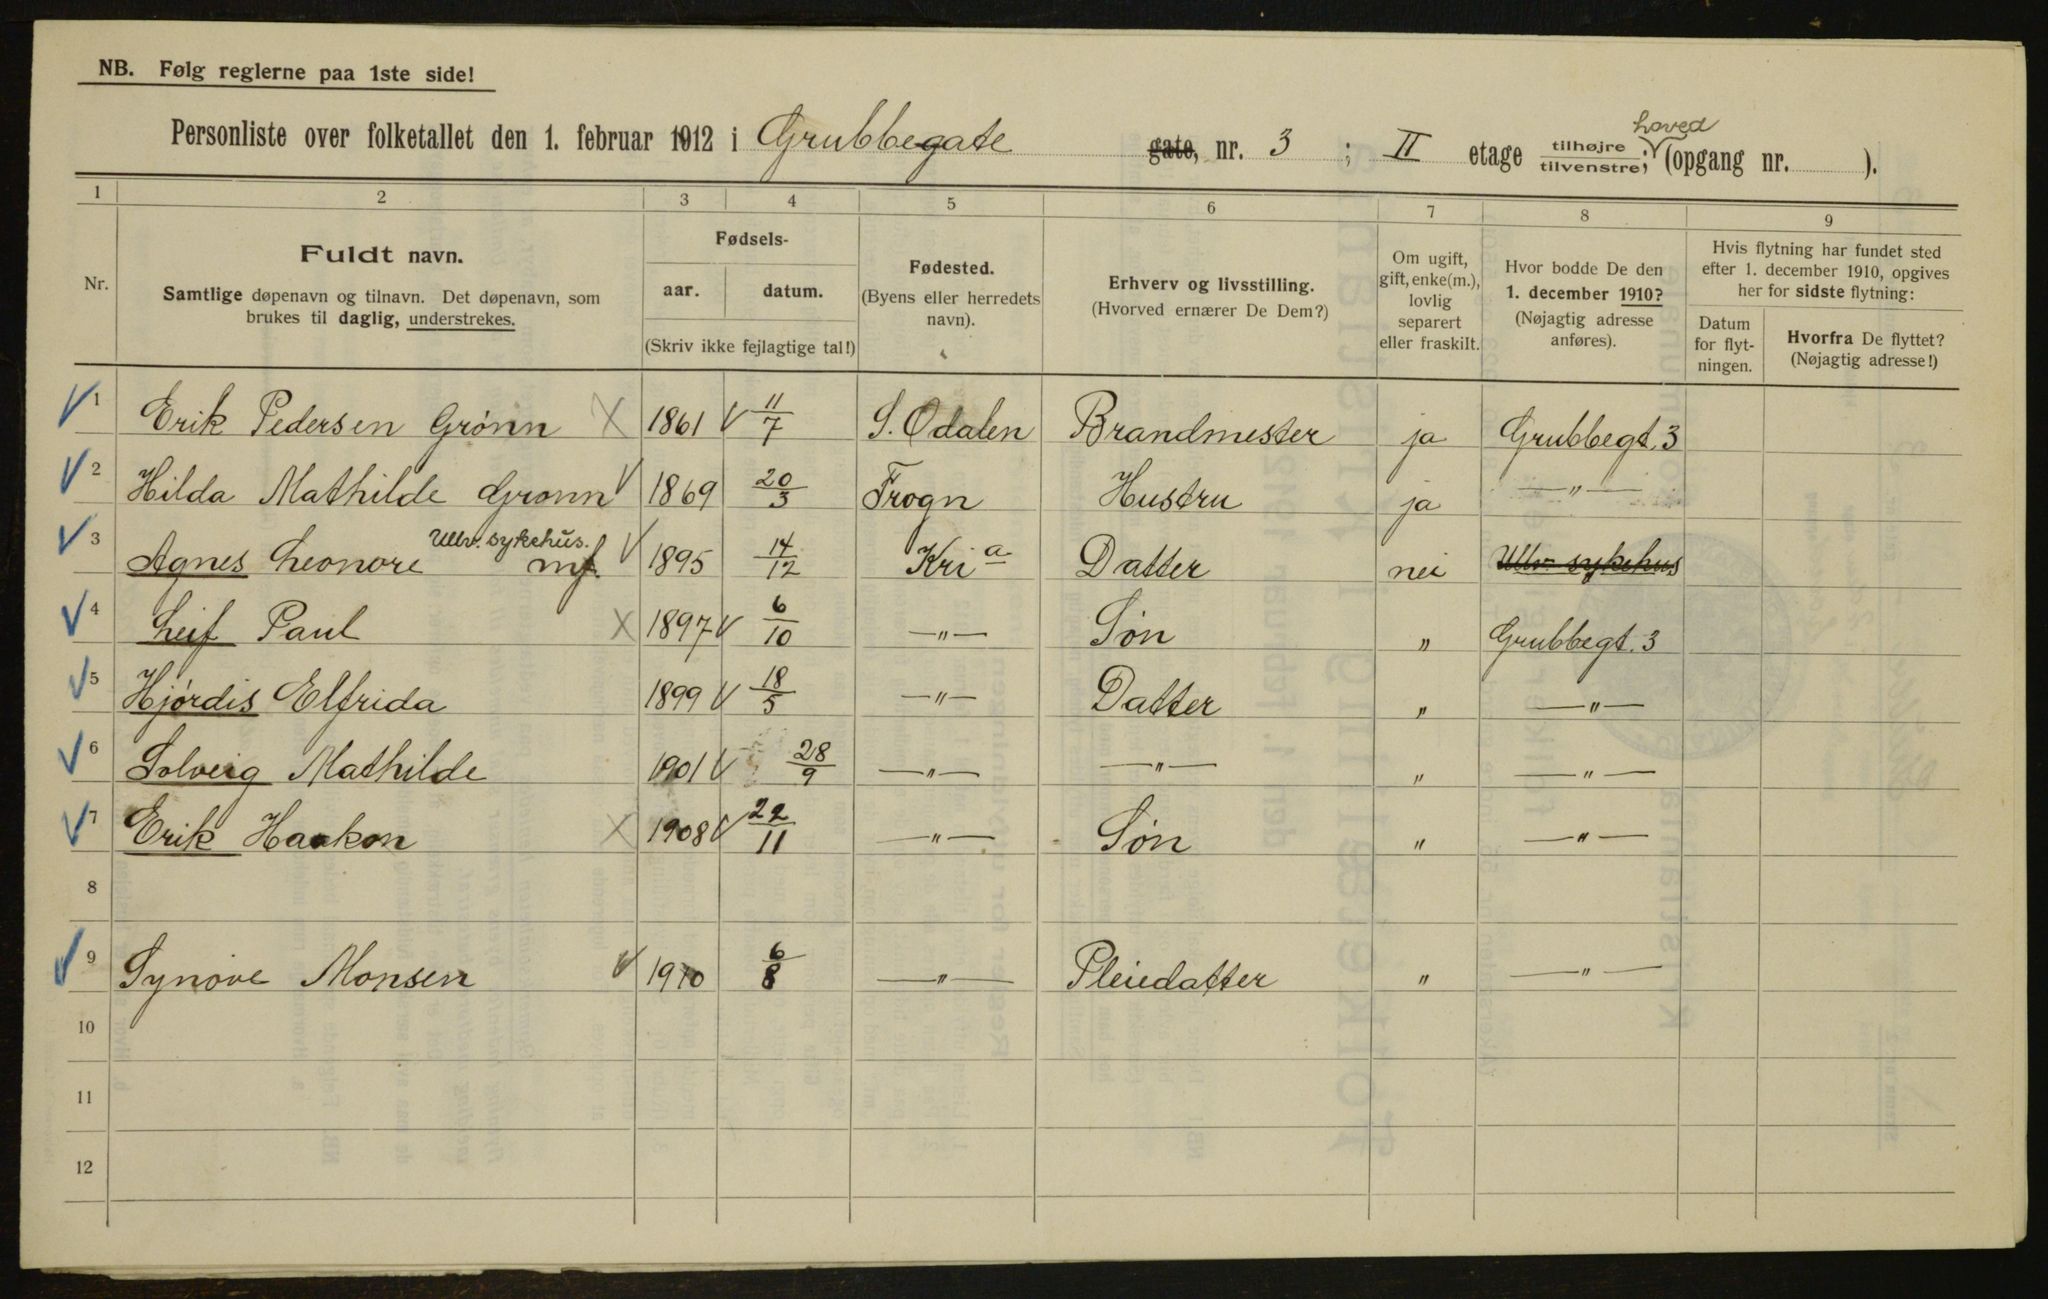 NB. Følg reglerne paa 1ste side!
hoved
Personliste over folketallet den 1. februar 1912 i Grubbegate gate, nr. 3 ; II etage tilhøjre tilvenstre; (opgang nr. ).
1 2 3 4 5 6 7 8 9
Nr.
Fuldt navn.
Samtlige døpenavn og tilnavn. Det døpenavn, som
brukes til daglig, understrekes.
Fødsels-
aar. datum.
(Skriv ikke fejlagtige tal!)
Fødested.
(Byens eller herredets
navn).
Erhverv og livsstilling.
(Hvorved ernærer De Dem?)
Om ugift,
gift, enke(m.),
lovlig
separert
eller fraskilt.
Hvor bodde De den
1. december 1910?
(Nøjagtig adresse
anføres).
Hvis flytning har fundet sted
efter 1. december 1910, opgives
her for sidste flytning:
Datum
for flyt-
ningen.
Hvorfra De flyttet?
(Nøjagtig adresse!)
1 Erik Pedersen Grönn 1861 11/7 S. Odalen Brandmester ja Grubbegt. 3
2 Hilda Mathilde Gronn 1869 20/3 Frogn Hustru ja —"—
Ullv. sykehus.
3 Agnes Leonore mf. 1895 14/12 Kria Datter nei Ullv. sykehus
4 Leif Paul 1897 6/10 —"— Sön " Grubbegt. 3
5 Hjördis Elfrida 1899 18/5 —"— Datter " —"—
6 Solveig Mathilde 1901 28/9 —"— —"— " —"—
7 Erik Haakon 1908 22/11 —"— Sön " —"—
8
9 Synöve Monsen 1910 6/8 —"— Pleiedatter " —"—
10
11
12